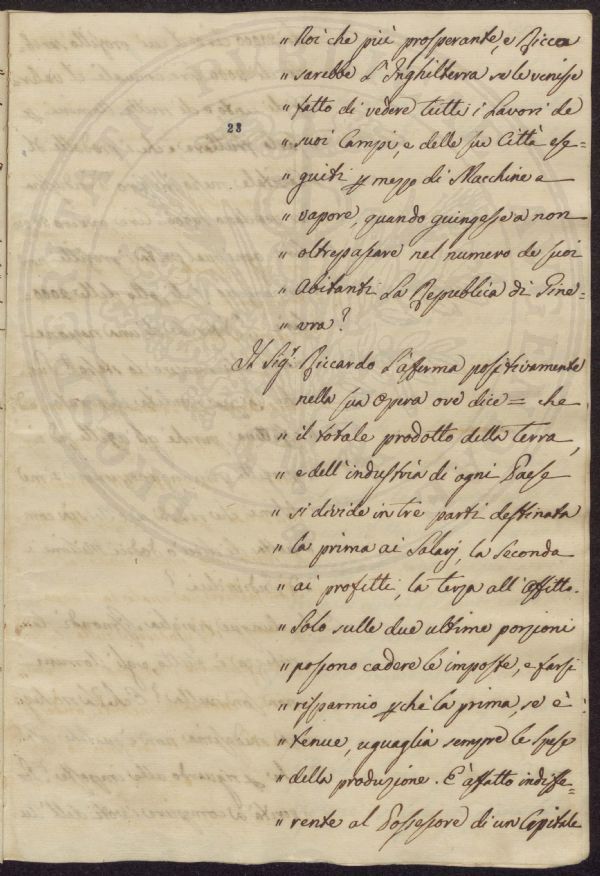 " Noi che più prosperante, e Ricca
" sarebbe L'Inghilterra se le venisse
" fatto di vedere tutti i Lavori de
23
" suoi Campi, e delle sue Città ese=
" guiti p mezzo di Macchine a
" vapore, quando guingesse a non
" oltrepassare nel numero de suoi
" Abitanti La Republica di Gine=
" vra?
Il Sigr. Riccardo L'afferma positivamente
nella sua Opera ove dice = che
" il totale prodotto della terra,
" e dell'industria di ogni Paese
" si divide in tre parti destinata
" la prima ai Salarj, la seconda
" ai profitti, la terza all'affitto.
" Solo sulle due ultime porzioni
" possono cadere le imposte, e farsi
" risparmio pchè la prima, se è
" tenue, uguaglia sempre le spese
" della produzione. E' affatto indiffe=
" rente al Possessore di un Capitale